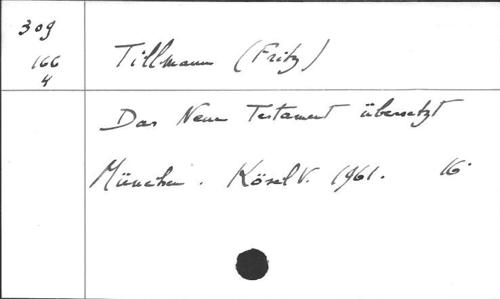 309
166
4
Tillmann (Fritz)
Das Neue Testament übersetzt
München. Kösel V. 1961. 16°